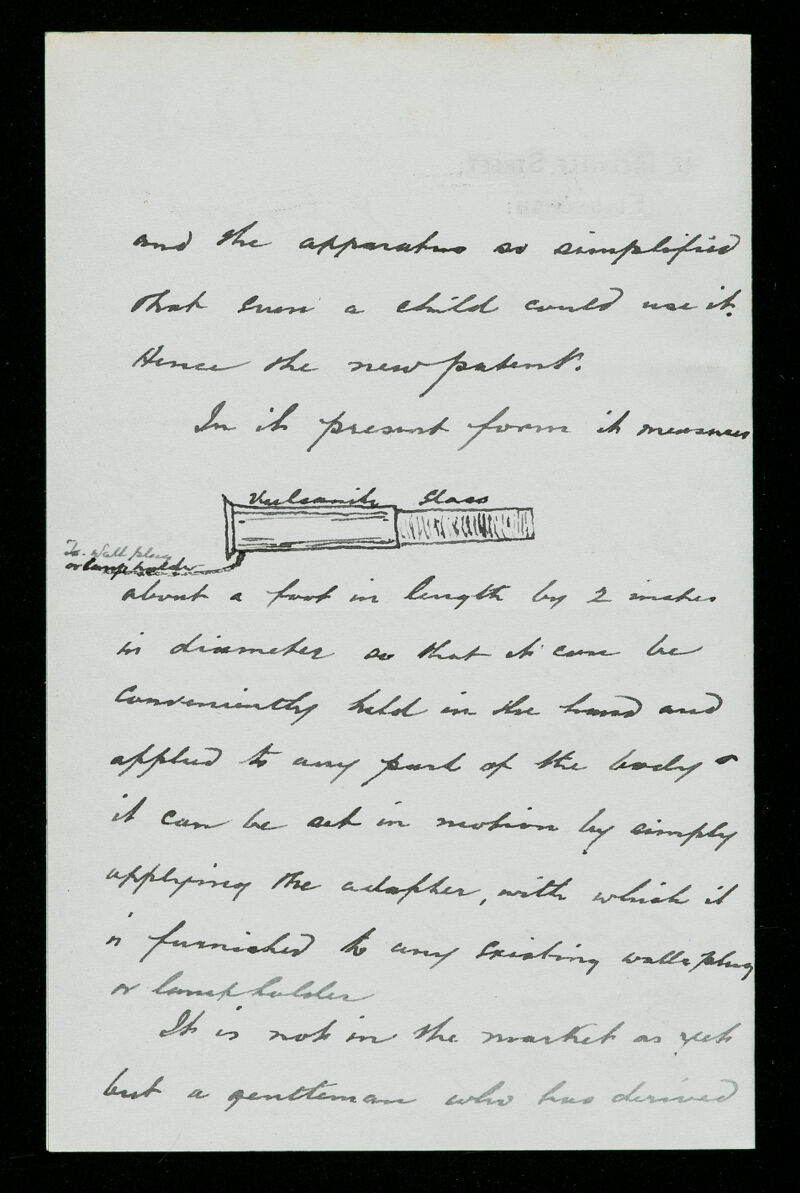 and the apparatus so simplified
that even a child could use it.
Hence the new patent.
In its present form it measures
Vulcanite Glass
To wall plug
or lampholder
about a foot in length by 2 inches
in diameter so that it can be
conveniently held in the hand and
applied to any part of the body &
it can be set in motion by simply
applying the adapter, with which it
is furnished to any existing wall plug
or lampholder
It is not in the market as yet
but a gentleman who has derived